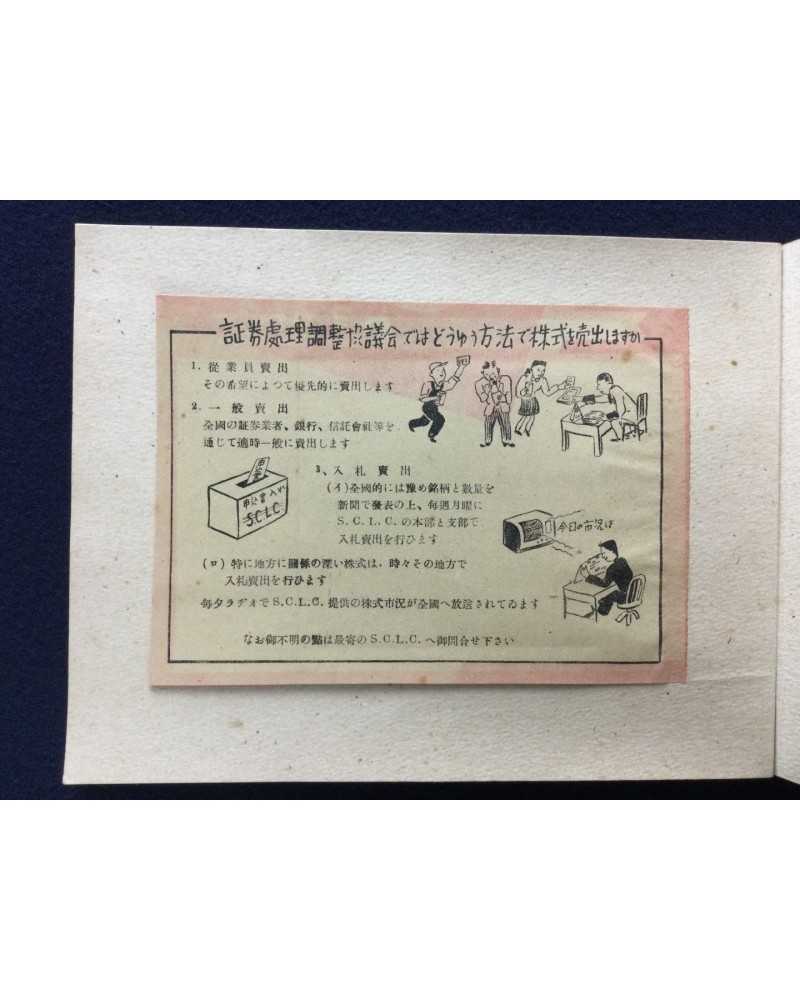 証券處理調整協議会ではどうゆう方法で株式を売出しますか
1. 從業員賣出
その希望によつて優先的に賣出します
2. 一般賣出
全國の証券業者、銀行、信託會社等を
通じて適時一般に賣出します
市込書
市込書入れ
S.C.L.C.
3、入札賣出
(イ)全國的には豫め銘柄と數量を
新聞で發表の上、毎週月曜に
S.C.L.C.の本部と支部で
入札賣出を行ひます
今日の市況は
(ロ) 特に地方に關係の深い株式は、時々その地方で
入札賣出を行ひます
毎夕ラヂオでS.C.L.C.提供の株式市況が全國へ放送されてゐます
なお御不明の點は最寄のS.C.L.C.へ御問合せ下さい